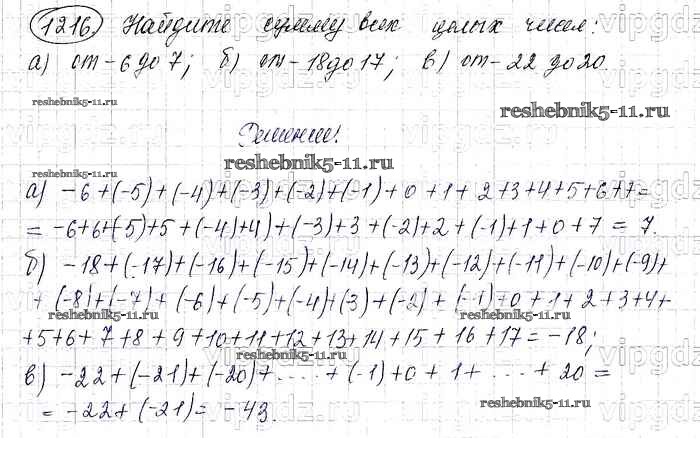 1216. Найдите сумму всех целых чисел:
а) от -6 до 7; б) от -18 до 17; в) от -22 до 20.
reshebnik5-11.ru
reshebnik5-11.ru
Решение:
reshebnik5-11.ru
а) -6+(-5)+(-4)+(-3)+(-2)+(-1)+0+1+2+3+4+5+6+7=
= -6+6+(-5)+5+(-4)+4)+(-3)+3+(-2)+2+(-1)+1+0+7 = 7.
б) -18+(-17)+(-16)+(-15)+(-14)+(-13)+(-12)+(-11)+(-10)+(-9)+
+(-8)+(-7)+(-6)+(-5)+(-4)+(3)+(-2)+(-1)+0+1+2+3+4+
reshebnik5-11.ru reshebnik5-11.ru
+5+6+7+8+9+10+11+12+13+14+15+16+17=-18;
reshebnik5-11.ru
в) -22+(-21)+(-20)+....+(-1)+0+1+...+20=
= -22+(-21)= -43.
reshebnik5-11.ru